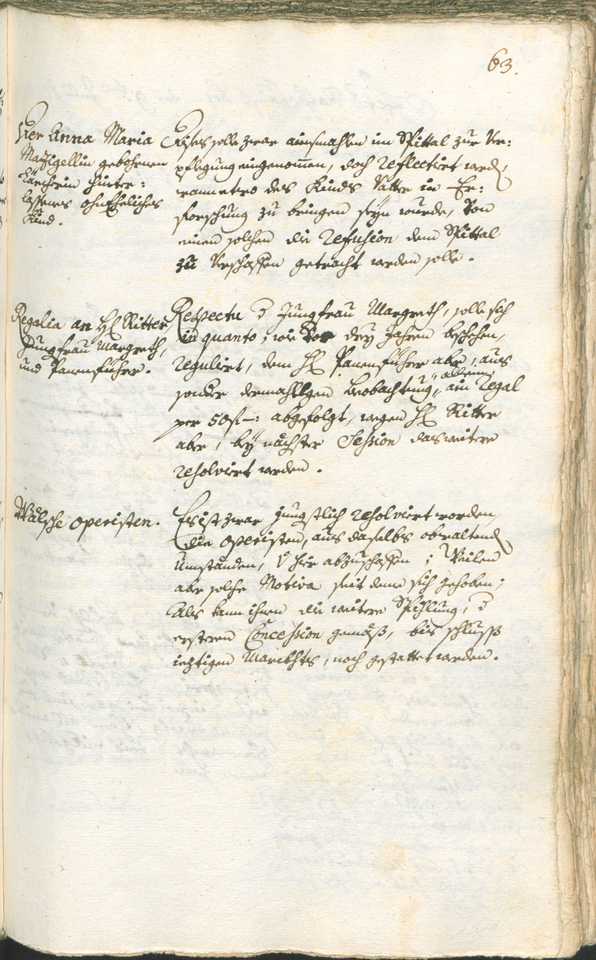 63.
Der Anna Maria
gebohrenen
hinter:
lassenes ohneheliches
Kind.
solle zwar ainsmahlen im Spittal zur Ver:
pflegung eingenommen, doch reflectirt werden,
des Kinds Vatter in Er:
forschung zu bringen seyn wurde, von
einem solchen die refusion dem Spittal
zu verschaffen getracht werden solle.
Regalia an H. Ritter
Jungfrau Margreth,
und Panenführer.
Respectu d Jungfrau Margreth, solle sich
in quanto, wie vor drey Jahren beschehen,
regulirt, dem H. Panenführer aber, aus
sonder dermahligen beobachtung, ain Regal
per 50 f: abgefolgt, wegen H. Ritter
aber, bey nächster Session das weitere
resolvirt werden.
Wälsche operisten.
Es ist zwar jüngstlich resolvirt worden
die operisten, aus daselbs obwaltenden
umständen, v hir abzuschaffen; Weilen
aber solche Motiva seit deme sich gehoben;
Als kan ihnen die weitere Spihlung, d
ersteren Concession gemäß, bis schluss
ieztigen Marckhts, noch gestattet werden.